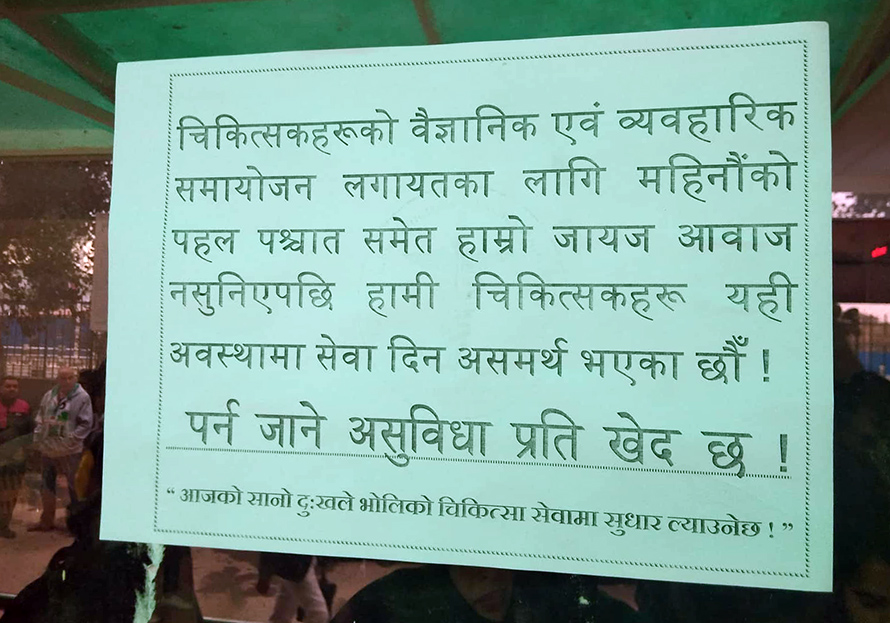 चिकित्सकहरूको वैज्ञानिक एवं व्यवहारिक
समायोजन लगायतका लागि महिनौंको
पहल पश्चात समेत हाम्रो जायज आवाज
नसुनिएपछि हामी चिकित्सकहरू यही
अवस्थामा सेवा दिन असमर्थ भएका छौँ !
पर्न जाने असुविधा प्रति खेद छ !
“ आजको सानो दुःखले भोलिको चिकित्सा सेवामा सुधार ल्याउनेछ ! ”